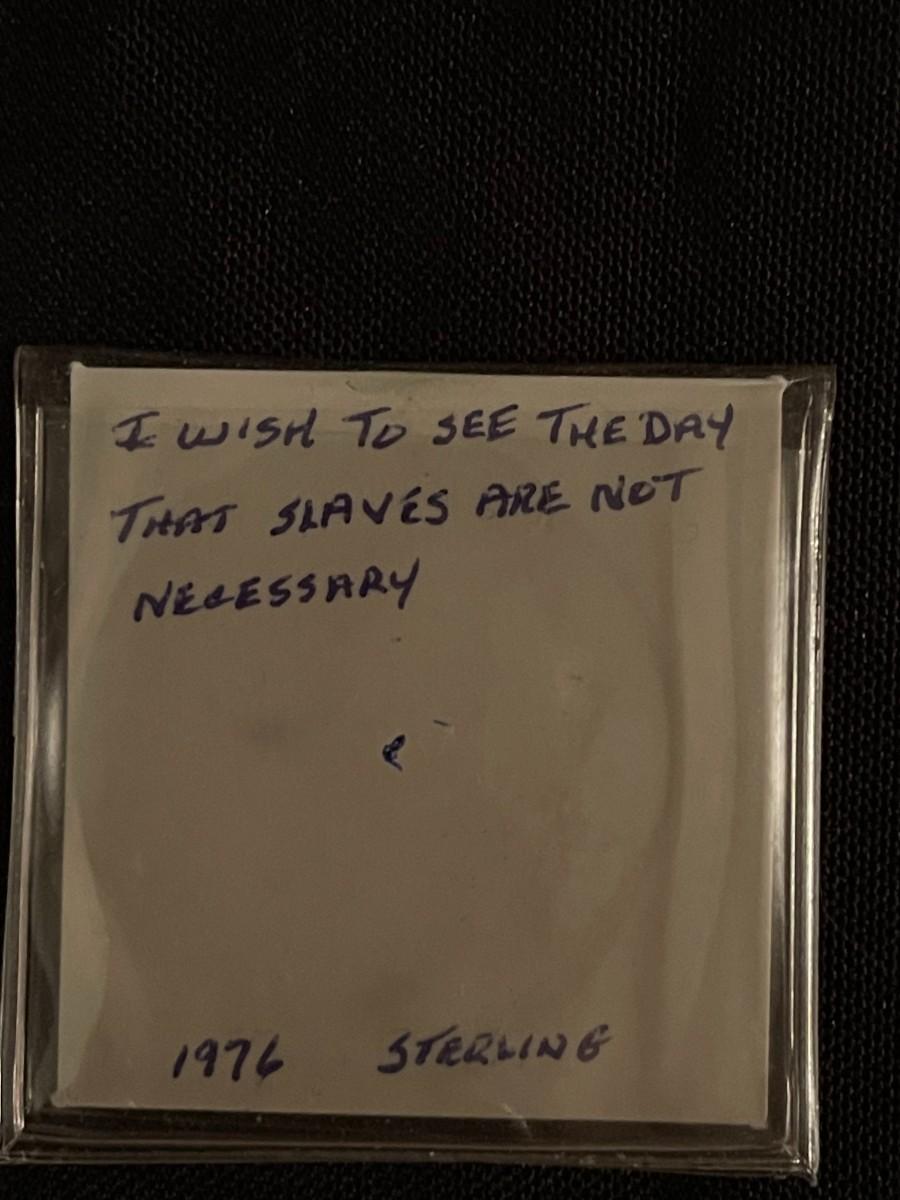 I WISH TO SEE THE DAY
THAT SLAVES ARE NOT
NECESSARY
1976 STERLING